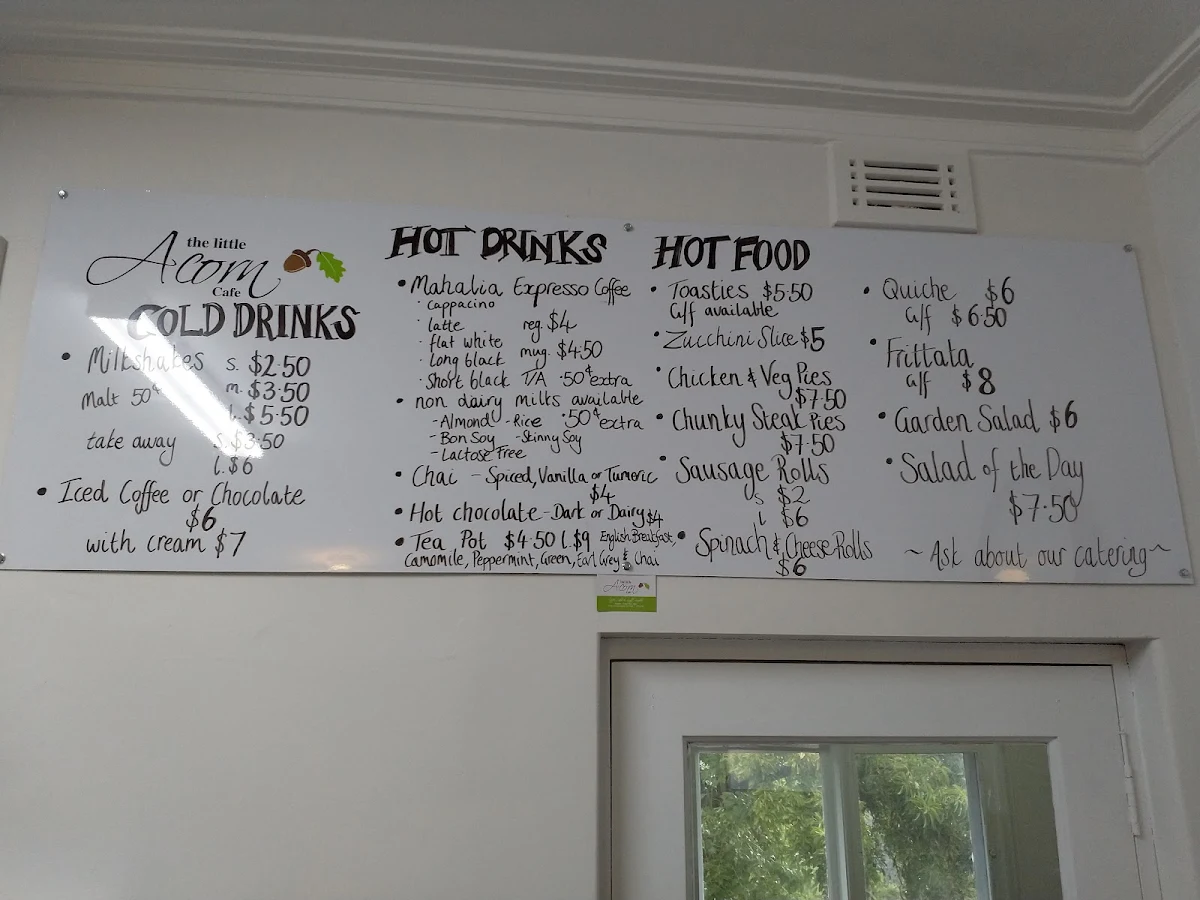 the little
Acorn
Cafe
COLD DRINKS
• Milkshakes s. $2.50
Malt 50¢ m. $3.50
l. $5.50
take away s. $3.50
l. $6
• Iced Coffee or Chocolate
$6
with cream $7
HOT DRINKS
• Mahalia Expresso Coffee
· cappacino
· latte reg. $4
· flat white
· long black mug. $4.50
· short black T/A .50¢ extra
• non dairy milks available
- Almond - Rice .50¢ extra
- Bon Soy - Skinny Soy
- Lactose Free
• Chai - Spiced, Vanilla or Tumeric
$4
• Hot chocolate - Dark or Dairy $4
• Tea Pot $4.50 l. $9 English Breakfast,
Camomile, Peppermint, Green, Earl Grey & Chai
HOT FOOD
• Toasties $5.50
G/f available
• Zucchini Slice $5
• Chicken & Veg Pies
$7.50
• Chunky Steak Pies
$7.50
• Sausage Rolls
s $2
l $6
• Spinach & Cheese Rolls
$6
• Quiche $6
G/f $6.50
• Frittata
G/f $8
• Garden Salad $6
• Salad of the Day
$7.50
~ Ask about our catering ~
Acorn